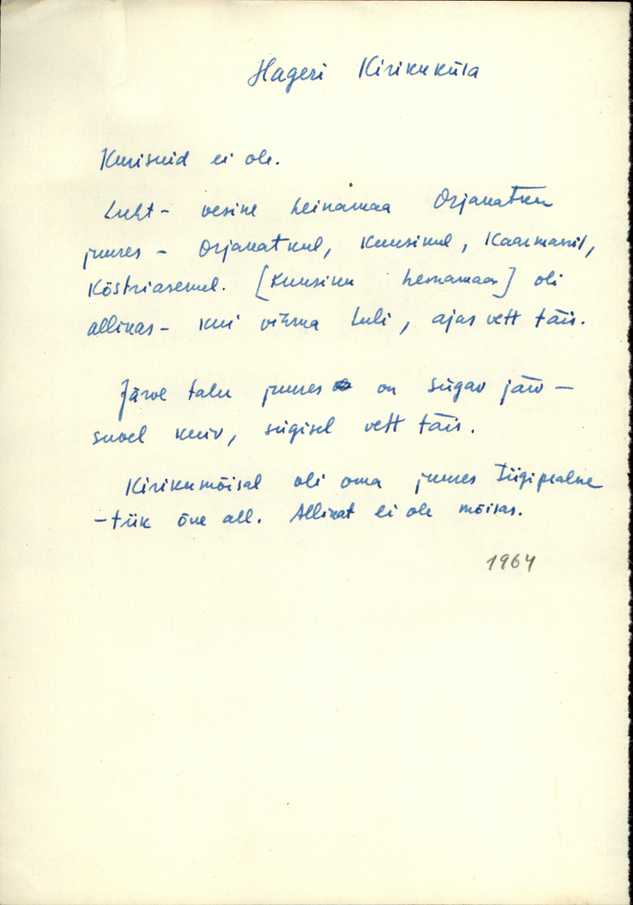 Hageri Kirikuküla
Kurisuid ei ole.
Luht - vesine heinamaa Orjanatku
juures - Orjanatkul, Kuusikul, Kaarmannil,
Köstriasemel. [Kuusiku heinamaas] oli
allikas - kui vihma tuli, ajas vett täis.
Järve talu juures on sügav järv -
suvel kuiv, sügisel vett täis.
Kirikumõisal oli oma juures Tiigipealne
- tiik õue all. Allikat ei ole mõisas.
1964